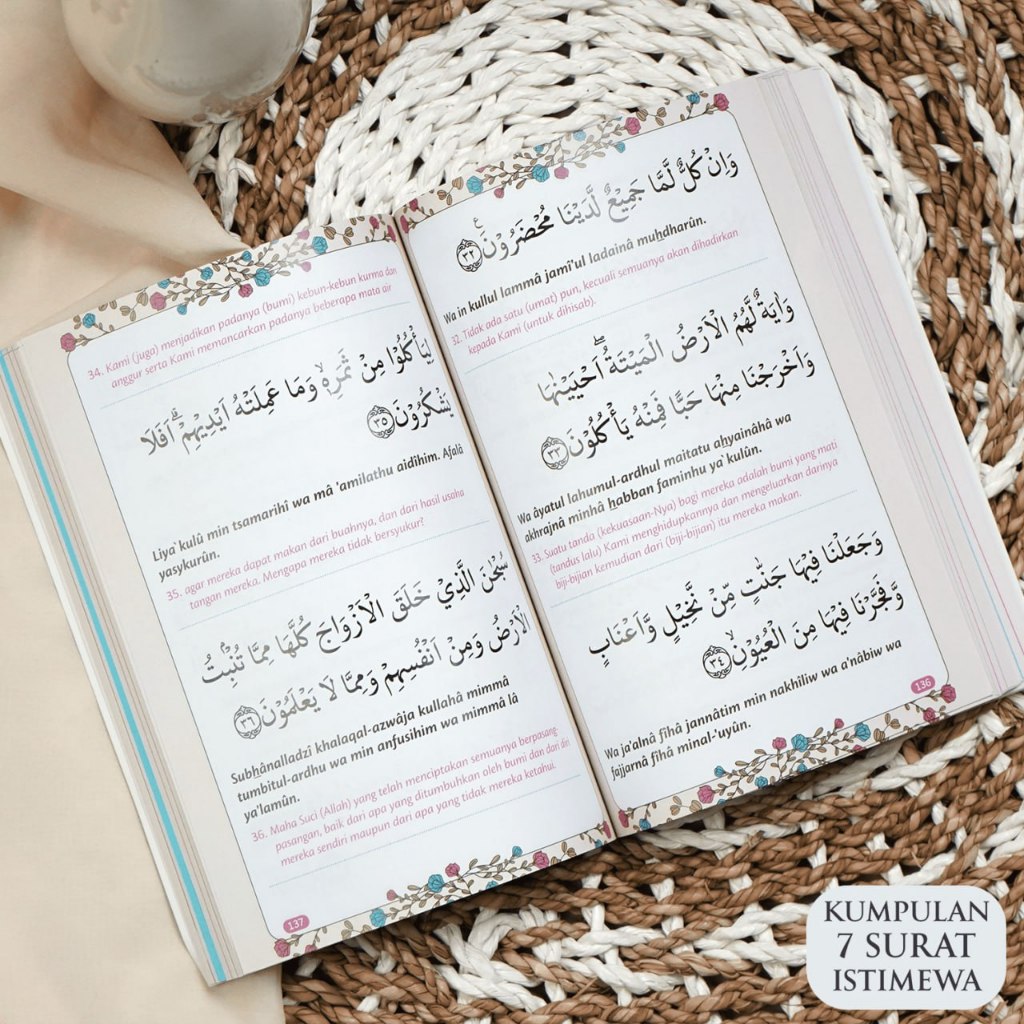 وَاِنْ كُلٌّ لَّمَّا جَمِيْعٌ لَّدَيْنَا مُحْضَرُوْنَ ࣖ ٣٢
Wa in kullul lammâ jamî'ul ladainâ muhdharûn.
32. Tidak ada satu (umat) pun, kecuali semuanya akan dihadirkan
kepada Kami (untuk dihisab).
وَاٰيَةٌ لَّهُمُ الْاَرْضُ الْمَيْتَةُ ۖاَحْيَيْنٰهَا
وَاَخْرَجْنَا مِنْهَا حَبًّا فَمِنْهُ يَأْكُلُوْنَ ٣٣
Wa âyatul lahumul-ardhul maitatu ahyainâhâ wa
akhrajnâ minhâ habban faminhu ya`kulûn.
33. Suatu tanda (kekuasaan-Nya) bagi mereka adalah bumi yang mati
(tandus lalu) Kami menghidupkannya dan mengeluarkan darinya
biji-bijian kemudian dari (biji-bijian) itu mereka makan.
وَجَعَلْنَا فِيْهَا جَنّٰتٍ مِّنْ نَّخِيْلٍ وَّاَعْنَابٍ
وَّفَجَّرْنَا فِيْهَا مِنَ الْعُيُوْنِۙ ٣٤
Wa ja'alnâ fîhâ jannâtim min nakhîliw wa a'nâbiw wa
fajjarnâ fîhâ minal-'uyûn.
136
34. Kami (juga) menjadikan padanya (bumi) kebun-kebun kurma dan
anggur serta Kami memancarkan padanya beberapa mata air
لِيَأْكُلُوْا مِنْ ثَمَرِهٖۙ وَمَا عَمِلَتْهُ اَيْدِيْهِمْ ۗ اَفَلَا
يَشْكُرُوْنَ ٣٥
Liya`kulû min tsamarihî wa mâ 'amilathu aidîhim. Afalâ
yasykurûn.
35. agar mereka dapat makan dari buahnya, dan dari hasil usaha
tangan mereka. Mengapa mereka tidak bersyukur?
سُبْحٰنَ الَّذِيْ خَلَقَ الْاَزْوَاجَ كُلَّهَا مِمَّا تُنْۢبِتُ
الْاَرْضُ وَمِنْ اَنْفُسِهِمْ وَمِمَّا لَا يَعْلَمُوْنَ ٣٦
Subhânalladzî khalaqal-azwâja kullahâ mimmâ
tumbitul-ardhu wa min anfusihim wa mimmâ lâ
ya'lamûn.
36. Maha Suci (Allah) yang telah menciptakan semuanya berpasang
pasangan, baik dari apa yang ditumbuhkan oleh bumi dan dari diri
mereka sendiri maupun dari apa yang tidak mereka ketahui.
137
KUMPULAN
7 SURAT
ISTIMEWA